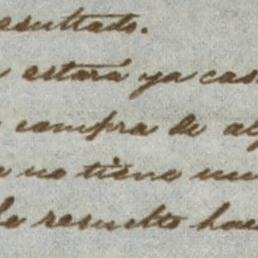 resultado.
estará ya cas
compra de al
no tiene mu
la resuelto hac